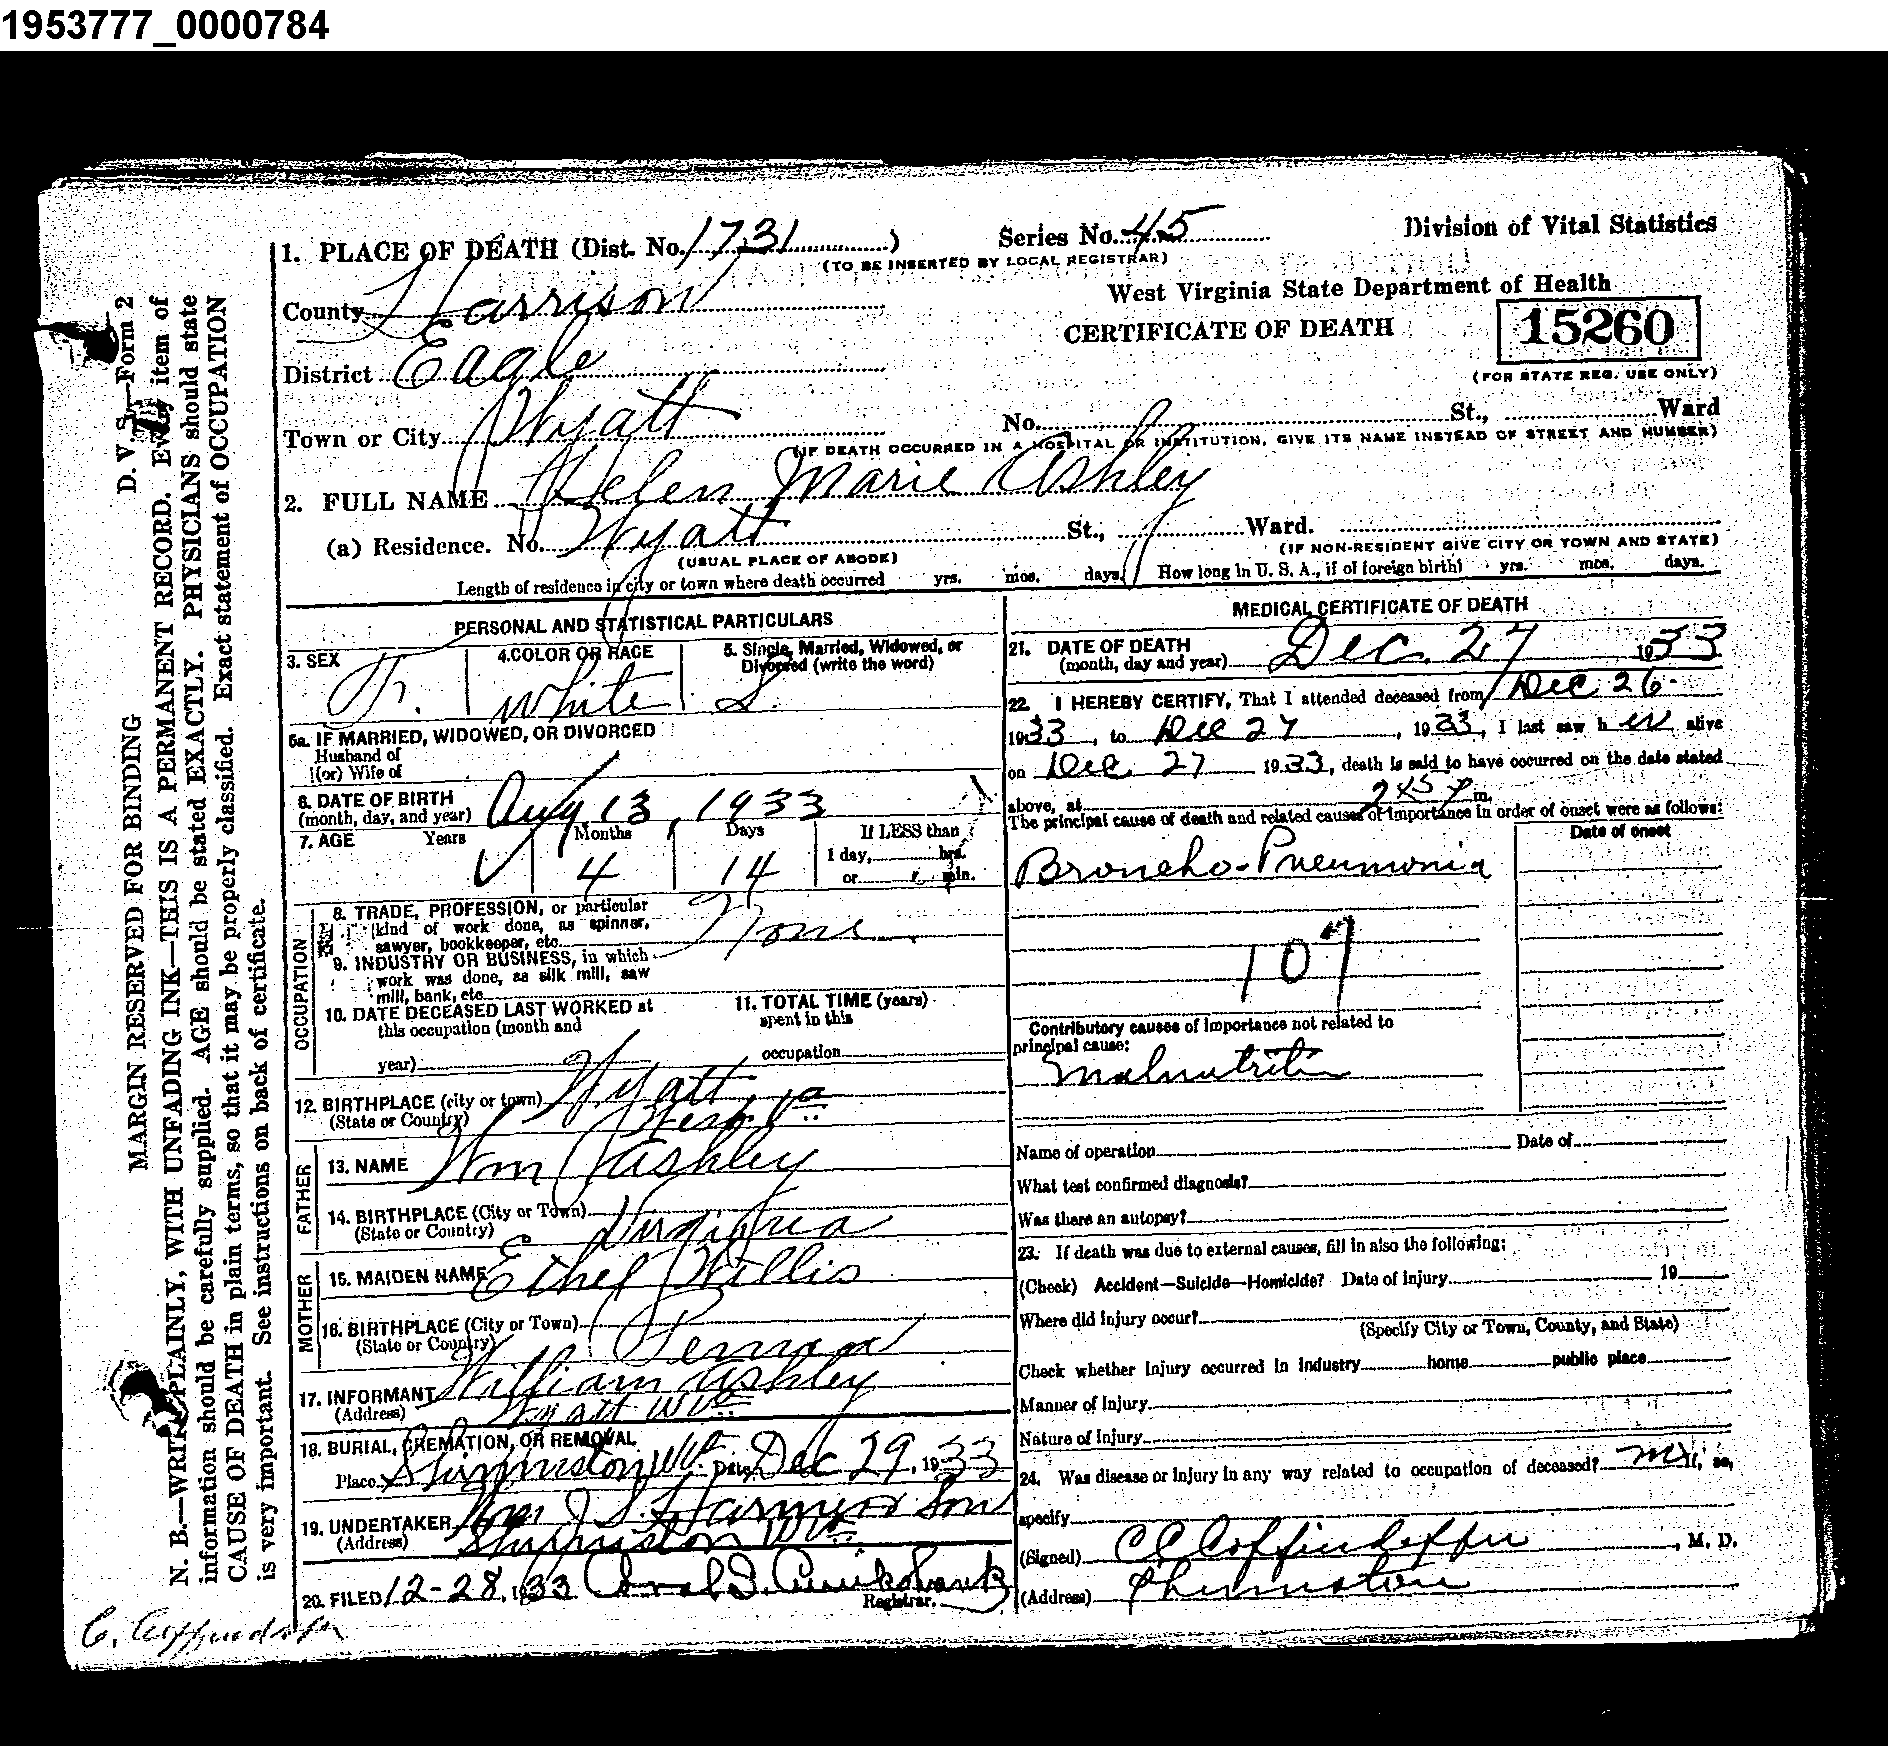 1953777_0000784
D. V. S.—Form 2
MARGIN RESERVED FOR BINDING
N. B.—WRITE PLAINLY, WITH UNFADING INK—THIS IS A PERMANENT RECORD. Every item of
information should be carefully supplied. AGE should be stated EXACTLY. PHYSICIANS should state
CAUSE OF DEATH in plain terms, so that it may be properly classified. Exact statement of OCCUPATION
is very important. See instructions on back of certificate.
1. PLACE OF DEATH (Dist. No. 1731)
Series No. 45
(TO BE INSERTED BY LOCAL REGISTRAR)
Division of Vital Statistics
County Harrison
West Virginia State Department of Health
CERTIFICATE OF DEATH
15260
(FOR STATE REG. USE ONLY)
District Eagle
Town or City Wyatt
No. St., Ward
(IF DEATH OCCURRED IN A HOSPITAL OR INSTITUTION, GIVE ITS NAME INSTEAD OF STREET AND NUMBER)
2. FULL NAME Helen Marie Ashley
(a) Residence. No. Wyatt St., Ward.
(USUAL PLACE OF ABODE)
(IF NON-RESIDENT GIVE CITY OR TOWN AND STATE)
Length of residence in city or town where death occurred yrs. mos. days. How long in U. S. A., if of foreign birth? yrs. mos. days.
PERSONAL AND STATISTICAL PARTICULARS
3. SEX
4. COLOR OR RACE
5. Single, Married, Widowed, or
Divorced (write the word)
F. white S.
5a. IF MARRIED, WIDOWED, OR DIVORCED
Husband of
(or) Wife of
6. DATE OF BIRTH
(month, day, and year) Aug 13, 1933
7. AGE Years Months Days If LESS than
1 day, hrs.
or min.
4 14
OCCUPATION
8. TRADE, PROFESSION, or particular
kind of work done, as spinner,
sawyer, bookkeeper, etc. None
9. INDUSTRY OR BUSINESS, in which
work was done, as silk mill, saw
mill, bank, etc.
10. DATE DECEASED LAST WORKED at
this occupation (month and
year)
11. TOTAL TIME (years)
spent in this
occupation
12. BIRTHPLACE (city or town) Wyatt
(State or Country) West Va
FATHER
13. NAME Wm Ashley
14. BIRTHPLACE (City or Town)
(State or Country) Virginia
MOTHER
15. MAIDEN NAME Ethel Willis
16. BIRTHPLACE (City or Town)
(State or Country) Penna
17. INFORMANT William Ashley
(Address) Wyatt W Va
18. BURIAL, CREMATION, OR REMOVAL
Place Shinnston W. Date Dec 29, 1933
19. UNDERTAKER J. S. Harmer Son
(Address) Shinnston W Va
20. FILED 12-28, 1933
Registrar.
MEDICAL CERTIFICATE OF DEATH
21. DATE OF DEATH
(month, day and year) Dec. 27 1933
22. I HEREBY CERTIFY, That I attended deceased from Dec 26
1933, to Dec 27, 1933, I last saw h er alive
on Dec 27 1933, death is said to have occurred on the date stated
above, at 245 P m.
The principal cause of death and related causes of importance in order of onset were as follows:
Date of onset
Broncho-Pneumonia
107
Contributory causes of importance not related to
principal cause:
Malnutrition
Name of operation Date of
What test confirmed diagnosis?
Was there an autopsy?
23. If death was due to external causes, fill in also the following:
(Check) Accident—Suicide—Homicide? Date of injury 19
Where did injury occur?
(Specify City or Town, County, and State)
Check whether injury occurred in industry home public place
Manner of injury
Nature of injury
24. Was disease or injury in any way related to occupation of deceased? If so,
specify
(Signed) C C Coffindaffer, M. D.
(Address) Shinnston